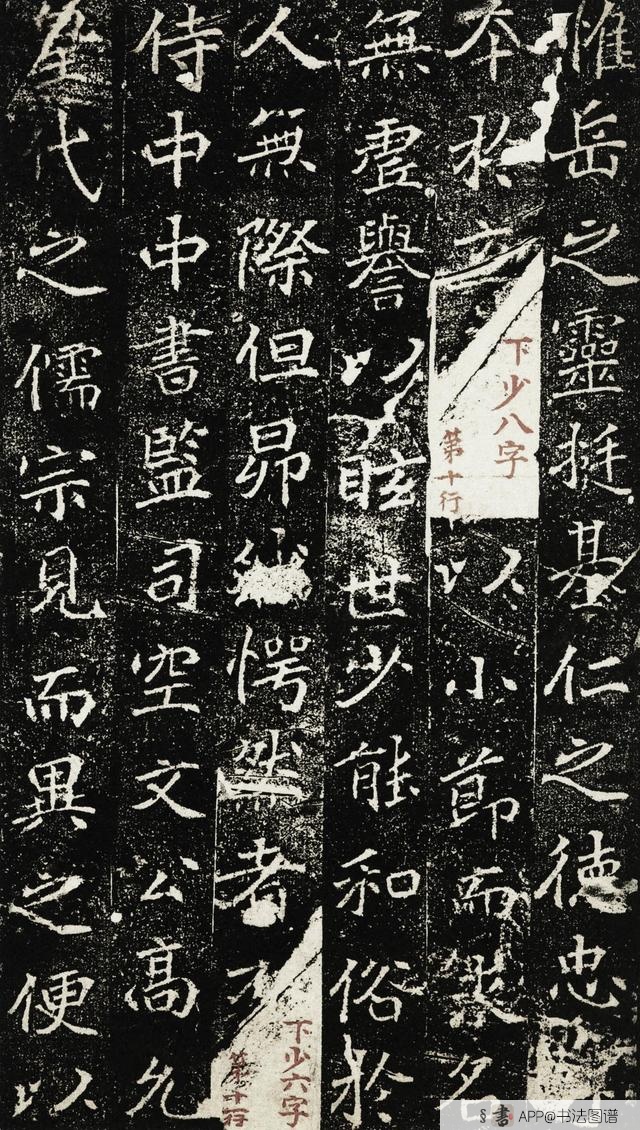 惟岳之靈挺基仁之德忠
本於立
下少八字
第十行
以小節而名
無虛譽以眩世少能和俗於
人無際但昂愕然者
下少六字
第十行
侍中中書監司空文公高允
皇代之儒宗見而異之便以
§書 APP@书法图谱